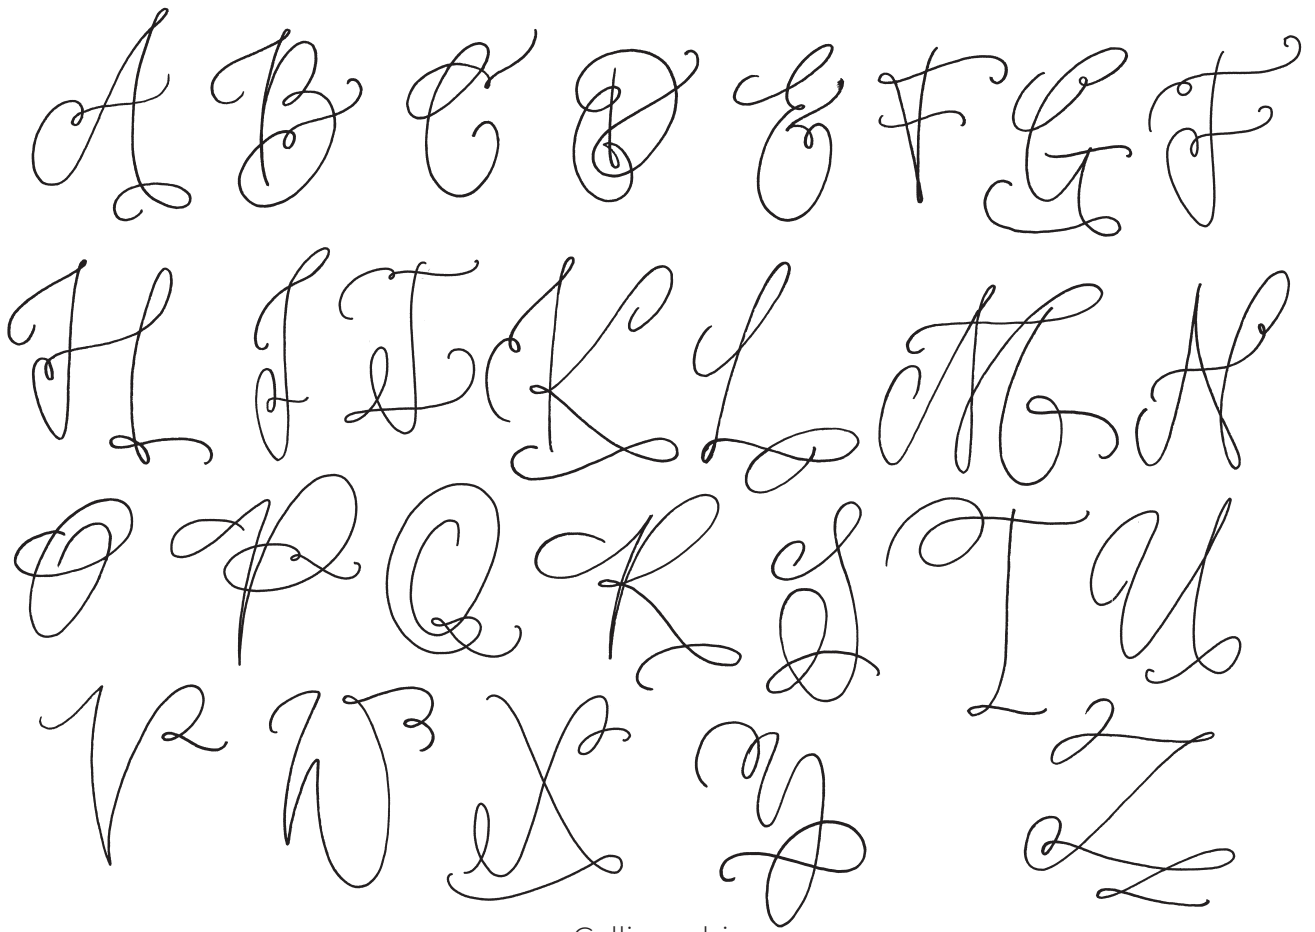 A B C D E F G F
H I J K L M N
O P Q R S T U
V W X Y Z